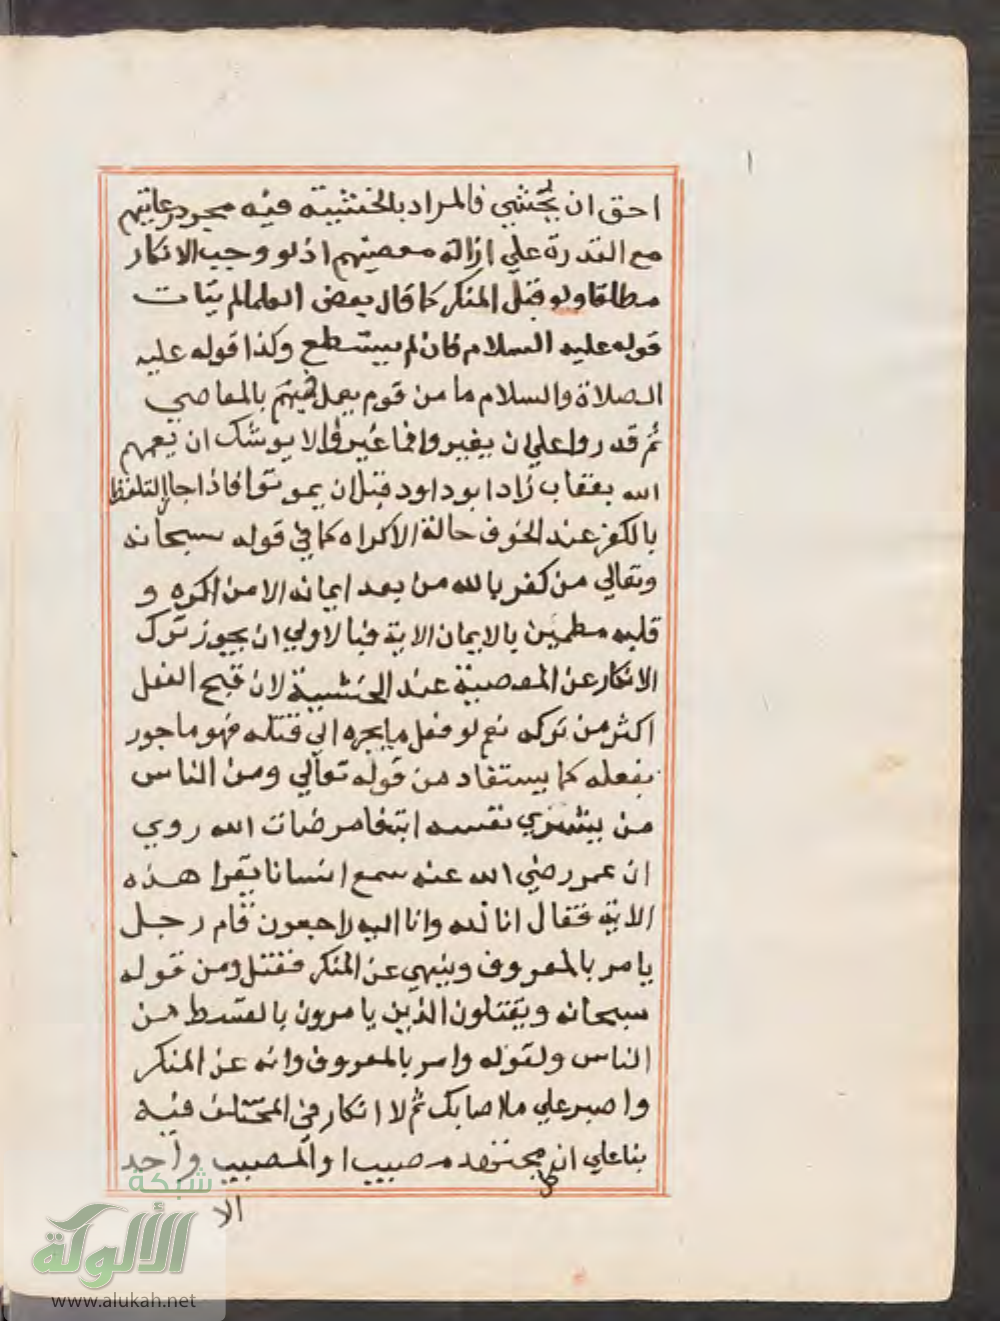 احق ان يخشي فالمراد بالخشية فيه مجرد رعايتهم
مع القدرة علي ازالة معصيتهم اذ لو وجب الانكار
مطلقا ولو قتل المنكر كما قال بعض العلما لم يتات
قوله عليه السلام فان لم يستطع وكذا قوله عليه
الصلاة والسلام ما من قوم يعمل فيهم بالمعاصي
ثم قدروا علي ان يغيروا فما غيروا الا يوشك ان يعمهم
الله بعقاب زاد ابو داود قبل ان يموتوا فاذا جاز التلفظ
بالكفر عند الخوف حالة الاكراه كما في قوله سبحانه
وتعالي من كفر بالله من بعد ايمانه الا من اكره و
قلبه مطمين بالايمان الاية فبالاولي ان يجوز ترك
الانكار عن المعصية عند الخشية لان قبح الفعل
اكثر من تركه نعم لو فعل ما يجره الي قتله فهو ماجور
بفعله كما يستفاد من قوله تعالي ومن الناس
من يشتري نفسه ابتغا مرضات الله روي
ان عمر رضي الله عنه سمع انسانا يقرا هذه
الاية فقال انا لله وانا اليه راجعون قام رجل
يامر بالمعروف وينهي عن المنكر فقتل ومن قوله
سبحانه ويقتلون الذين يامرون بالقسط من
الناس ولقوله وامر بالمعروف وانه عن المنكر
واصبر علي ما اصابك ثم لا انكار في المختلف فيه
بنا علي ان كل مجتهد مصيب او المصيب واحد
الا
شبكة
الألوكة
www.alukah.net